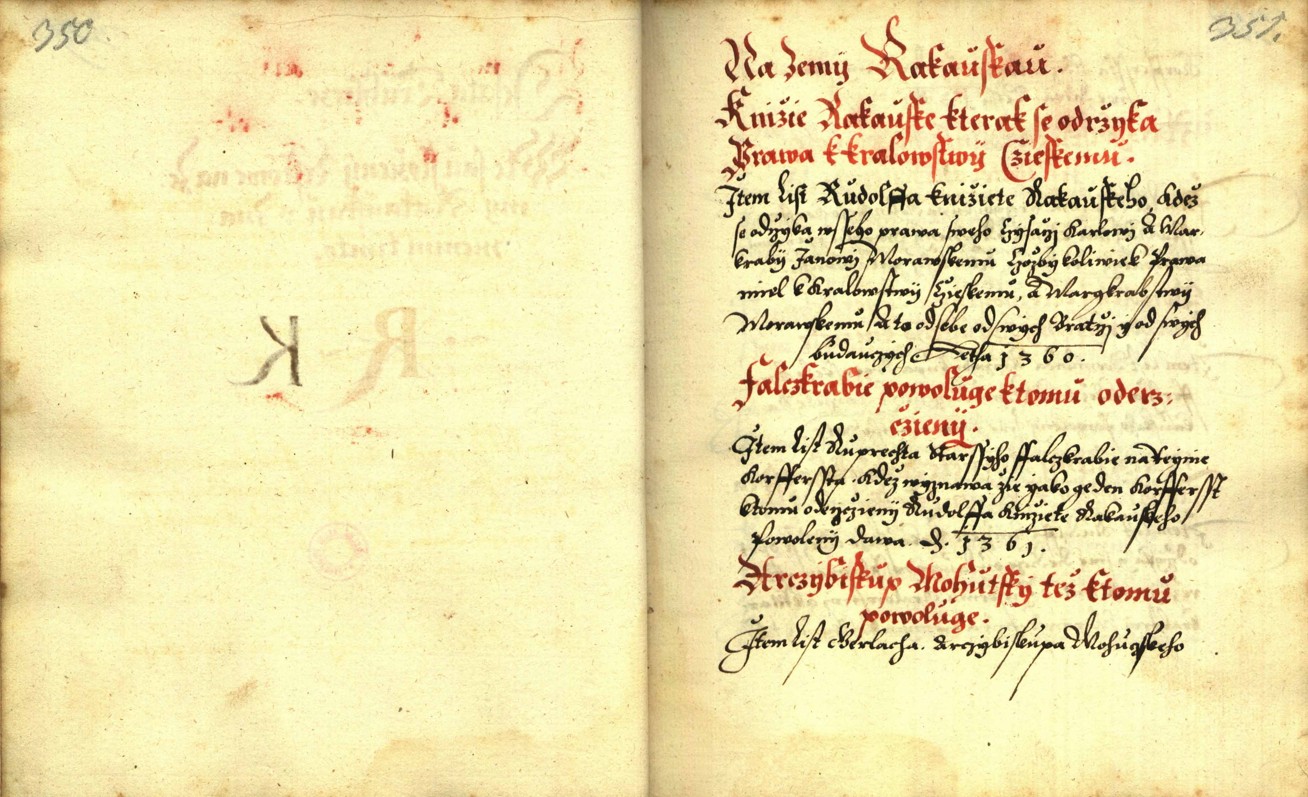 350
K R
351.
Na Zemij Rakauskau.
Knižie Rakauske kterak se održyka
Prawa k kralowstwij Czieskemu.
Item list Rudolffa knižiete Rakauskeho, kdež
se održyka wsseho prawa sweho Czysarzi Karlowi a Mar,
krabij Janowi Morawskemu Czožby koliwiek Prawa
miel k Kralowstwij Czieskemu, a Margkrabstwij
Morawskemu, a to od sebe od swych Bratrzi y od swych
buducczych Letha 1360.
Falczkrabie powoluge ktomu oderz,
czienij.
Item list Ruprechta Starssyho ffalczkrabie na Reynie
Korffersta. kdež wyznawa zie yako geden Korfferst
ktomu oderzczienij Rudolffa Knižiete Rakauskeho
Powolenij dawa. d. 1361.
Arczybiskup Mohutsky tež ktomu
powoluge.
Item list Gerlacha. Arczybiskupa Mohuczskeho